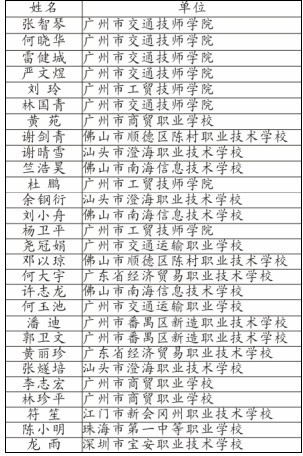 姓名 单位
张智琴 广州市交通技师学院
何晓华 广州市交通技师学院
雷健城 广州市交通技师学院
严文煜 广州市交通技师学院
刘 玲 广州市工贸技师学院
林国青 广州市交通技师学院
黄 苑 广州市商贸职业学校
谢剑青 佛山市顺德区陈村职业技术学校
谢晴雪 汕头市澄海职业技术学校
竺浩昊 佛山市南海信息技术学校
杜 鹏 广州市工贸技师学院
余钢衍 汕头市澄海职业技术学校
刘小舟 佛山市南海信息技术学校
杨卫平 广州市工贸技师学院
尧冠娟 广州市交通运输职业学校
邓以琼 佛山市顺德区陈村职业技术学校
何大宇 广东省经济贸易职业技术学校
许志龙 佛山市南海信息技术学校
何玉池 广州市交通运输职业学校
潘 迪 广州市番禺区新造职业技术学校
郭卫文 广州市番禺区新造职业技术学校
黄丽珍 广东省经济贸易职业技术学校
张燧培 汕头市澄海职业技术学校
李志宏 广州市商贸职业学校
林珍平 广州市商贸职业学校
符 笙 江门市新会冈州职业技术学校
陈小明 珠海市第一中等职业学校
龙 雨 深圳市宝安职业技术学校